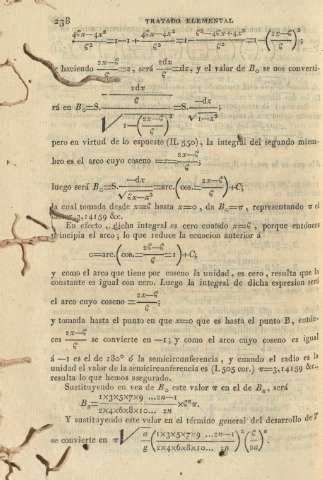 238 TRATADO ELEMENTAL
(4ςx−4x²)/ς² = 1−1+(4ςx−4x²)/ς² = 1−(ς²−4ςx+4x²)/ς² = 1−((2x−ς)/ς)²;
y haciendo (2x−ς)/ς = z, será 2dx/ς = dz, y el valor de B₀ se nos converti-
rá en B₀=S. −(2dx/ς)/√(1−((2x−ς)/ς)²) = S. −dz/√(1−z²);
pero en virtud de lo espuesto (II. 550), la integral del segundo miem-
bro es el arco cuyo coseno = z = (2x−ς)/ς;
luego será B₀=S. −dx/√(ςx−x²) = arc.(cos.=(2x−ς)/ς)+C;
la cual tomada desde x=ς hasta x=0, da B₀=π, representando π el
3,14159 &c.
En efecto, dicha integral es cero cuando x=ς, porque entonces
principia el arco; lo que reduce la ecuacion anterior á
0=arc.(cos.=(2ς−ς)/ς=1)+C;
y como el arco que tiene por coseno la unidad, es cero, resulta que la
constante es igual con cero. Luego la integral de dicha espresion será
el arco cuyo coseno = (2x−ς)/ς;
y tomada hasta el punto en que x=0 que es hasta el punto B, enton-
ces (2x−ς)/ς se convierte en −1; y como el arco cuyo coseno es igual
á −1 es el de 180° ó la semicircunferencia, y cuando el radio es la
unidad el valor de la semicircunferencia es (I. 505 cor.) π=3,14159 &c.,
resulta lo que hemos asegurado.
Sustituyendo en vez de B₀ este valor π en el de Bₙ, será
Bₙ = (1×3×5×7×9 ...2n−1)/(2×4×6×8×10... 2n) ×ςⁿπ.
Y sustituyendo este valor en el término general del desarrollo de T
se convierte en π√(a/g) (1×3×5×7×9 ...2n−1 / 2×4×6×8×10... 2n)² (ς/2a)ⁿ.